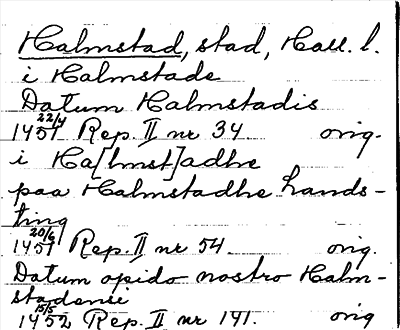 Halmstad, stad, Hall. l.
i Halmstade
Datum Halmstadis
22/4
1451 Rep. II nr 34. orig.
i Ha[lmst]adhe
paa Halmstadhe hands-
ting
20/6
1451 Rep. II nr 54. orig.
Datum opido nostro Halm-
stadensi
15/5
1452 Rep. II nr 141. orig